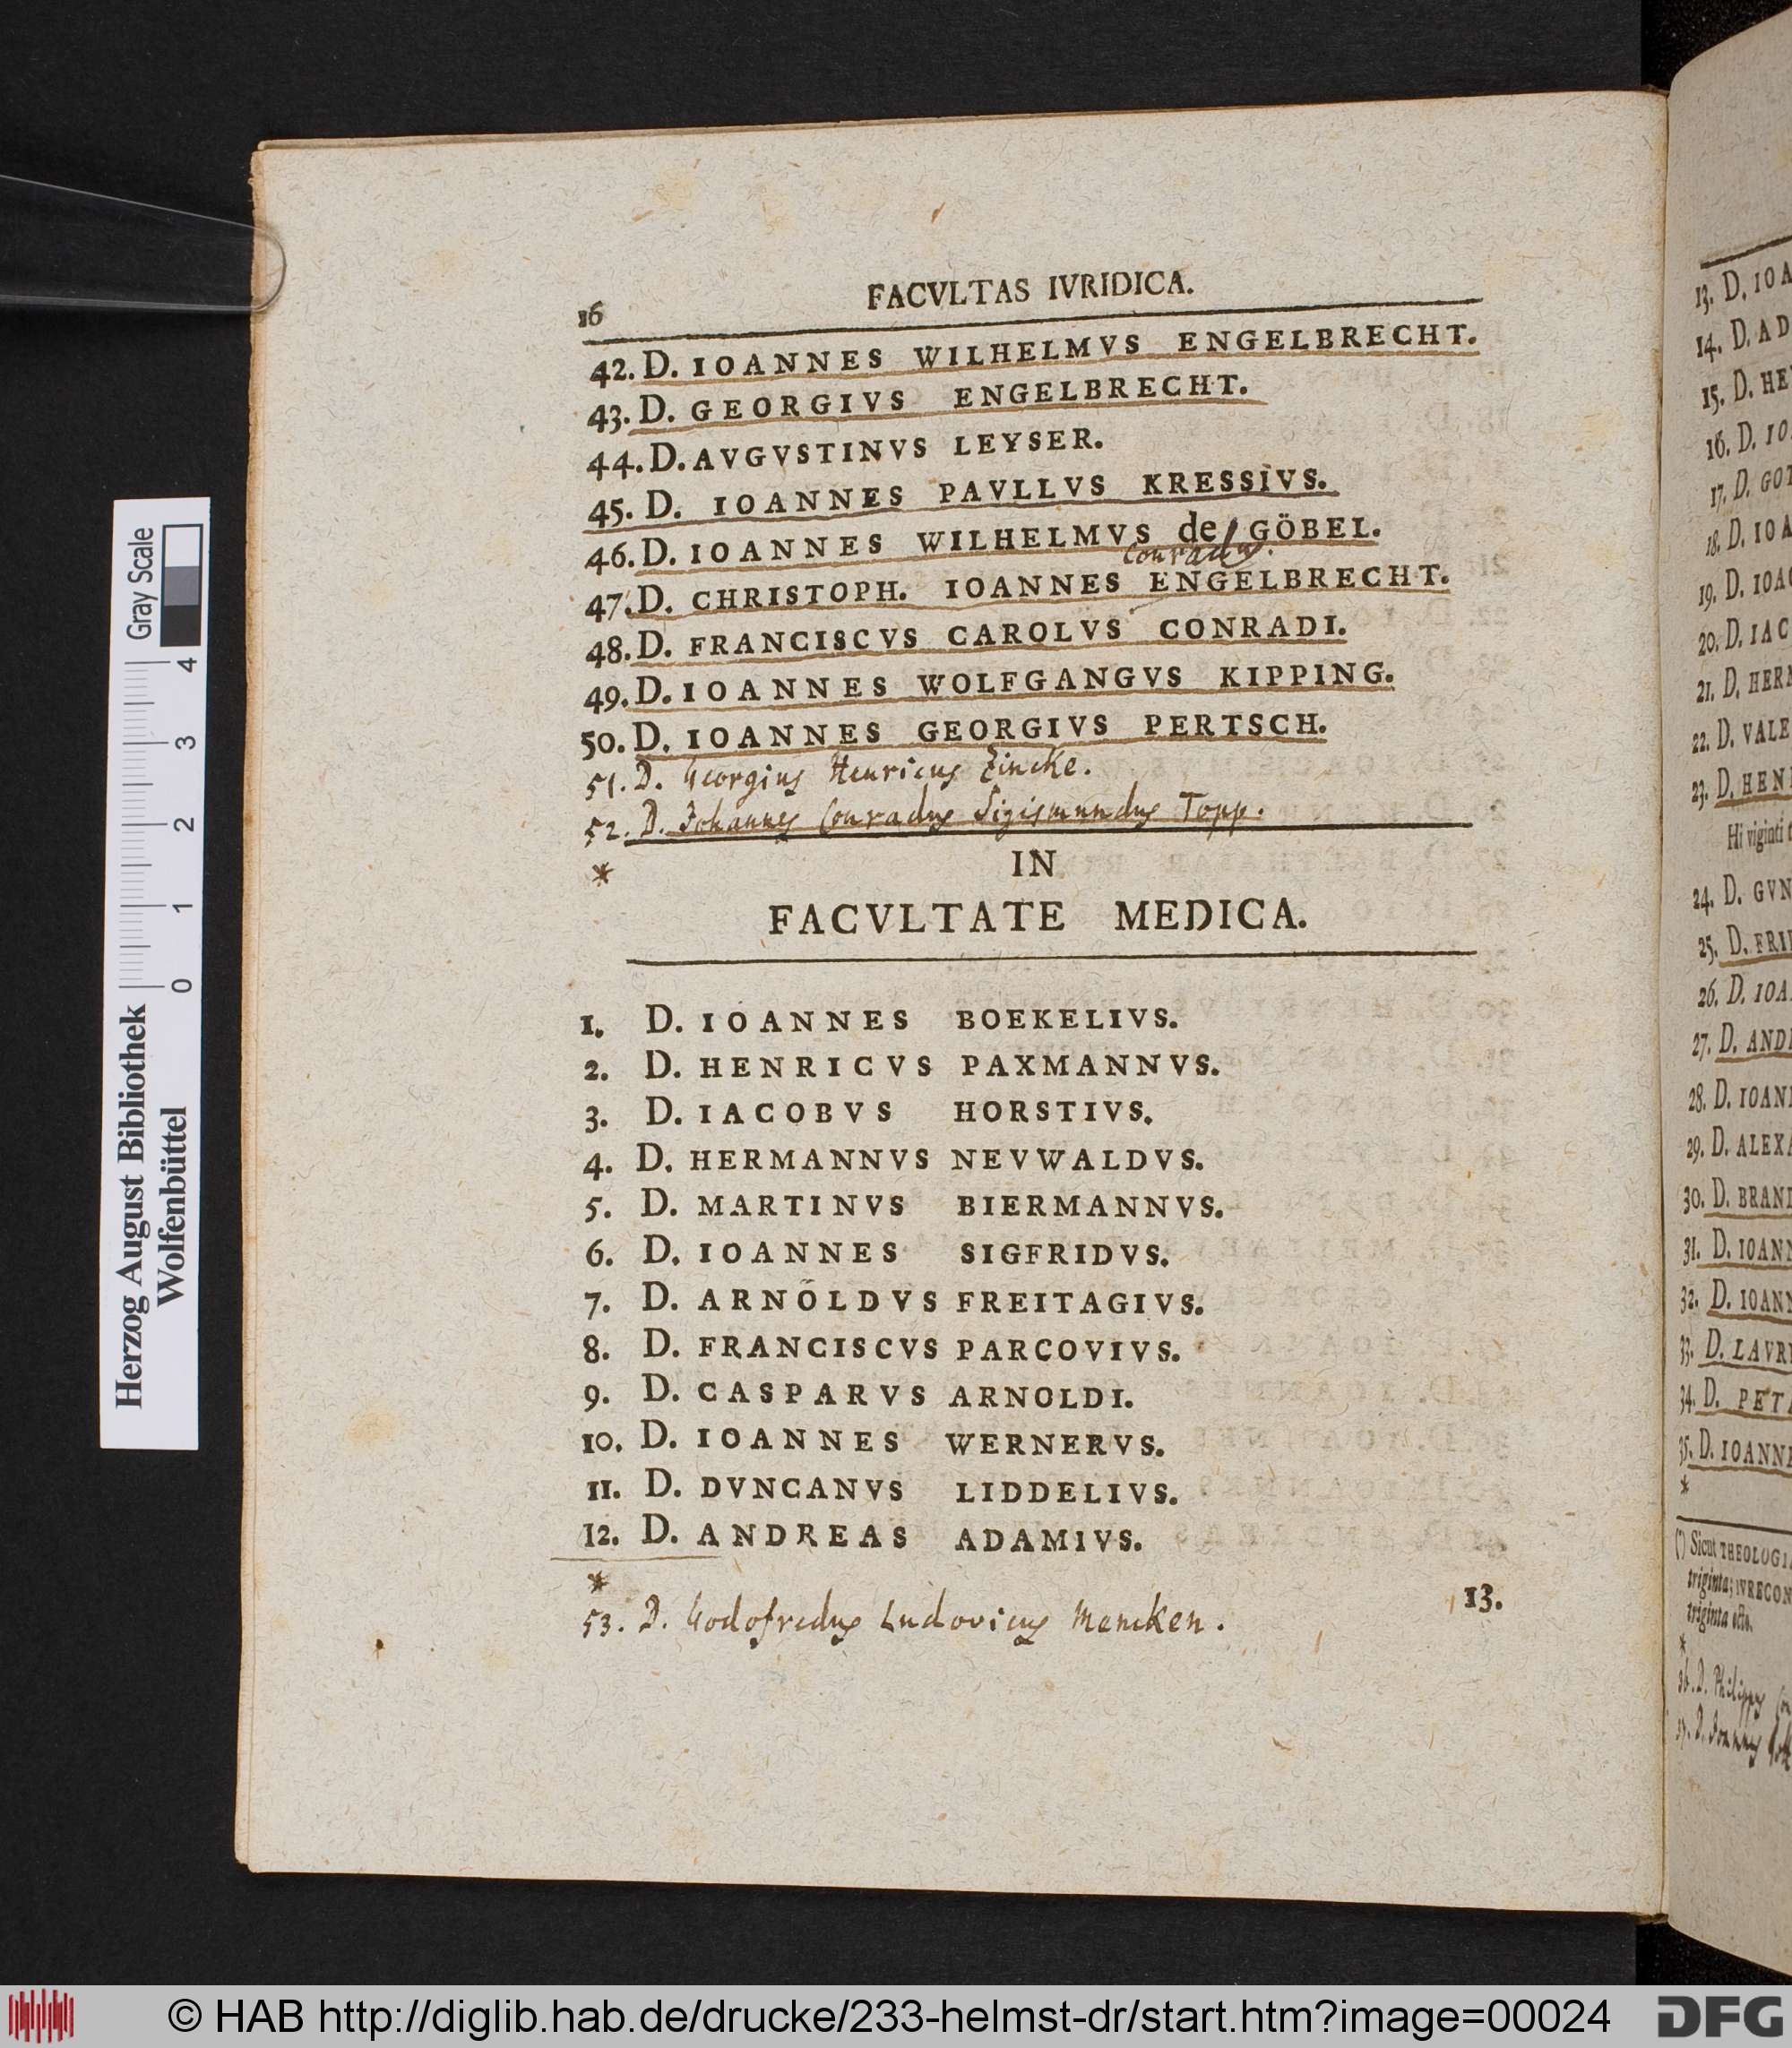 16 FACVLTAS IVRIDICA.
42. D. IOANNES WILHELMVS ENGELBRECHT.
43. D. GEORGIVS ENGELBRECHT.
44. D. AVGVSTINVS LEYSER.
45. D. IOANNES PAVLLVS KRESSIVS.
46. D. IOANNES WILHELMVS de GÖBEL.
Conradus.
47. D. CHRISTOPH. IOANNES ENGELBRECHT.
48. D. FRANCISCVS CAROLVS CONRADI.
49. D. IOANNES WOLFGANGVS KIPPING.
50. D. IOANNES GEORGIVS PERTSCH.
51. D. Georgius Henricus Zincke.
52. D. Johannes Conradus Sigismundus Topp.
*
IN
FACVLTATE MEDICA.
1. D. IOANNES BOEKELIVS.
2. D. HENRICVS PAXMANNVS.
3. D. IACOBVS HORSTIVS.
4. D. HERMANNVS NEVWALDVS.
5. D. MARTINVS BIERMANNVS.
6. D. IOANNES SIGFRIDVS.
7. D. ARNOLDVS FREITAGIVS.
8. D. FRANCISCVS PARCOVIVS.
9. D. CASPARVS ARNOLDI.
10. D. IOANNES WERNERVS.
11. D. DVNCANVS LIDDELIVS.
12. D. ANDREAS ADAMIVS.
*
13.
53. D. Godofredus Ludovicus Mencken.
13. D. IOA
14. D. AD
15. D. HE
16. D. IO
17. D. GOT
18. D. IOA
19. D. IOAC
20. D. IAC
21. D. HERM
22. D. VALE
23. D. HEN
Hi viginti
24. D. GVN
25. D. FRI
26. D. IOA
27. D. AND
28. D. IOAN
29. D. ALEXA
30. D. BRAN
31. D. IOAN
32. D. IOAN
33. D. LAVR
34. D. PET
35. D. IOANN
*
(*) Sicut THEOLOGI
triginta; IVRECON
triginta octo.
*
36. D. Philippus
37. D. Joannes
Gray Scale
0 1 2 3 4
Herzog August Bibliothek
Wolfenbüttel
© HAB http://diglib.hab.de/drucke/233-helmst-dr/start.htm?image=00024
DFG